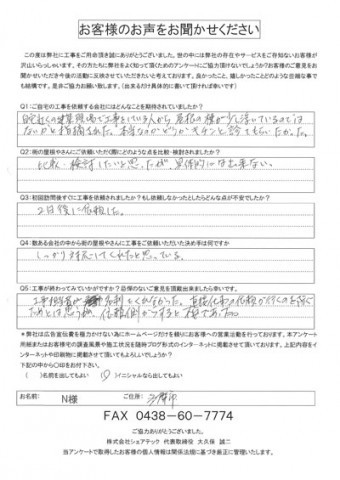 お客様のお声をお聞かせください
この度は弊社に工事をご用命頂き誠にありがとうございました。世の中には弊社の存在やサービスをご存知ないお客様が
沢山いらっしゃいます。その方たちに弊社をよく知って頂くためのアンケートにご協力頂けないでしょうか?お客様のご意見をお
聞かせいただき今後の活動に反映させていただきたいと考えております。良かったこと、嬉しかったことどのような些細な事で
も結構です。是非ご協力お願い致します。(出来るだけ具体的に書いて頂ければ幸いです)
Q1:ご自宅の工事を依頼する会社にはどんなことを期待されていましたか?
ないかと指摘された。本当なのかどうかキチンと診てもらいたかった。
Q2:街の屋根やさんにご依頼いただく際にどのような点を比較・検討されましたか?
比較・検討したいと思ったが、具体的には出来ない。
Q3:初回訪問後すぐに工事を依頼されましたか?もし依頼しなかったとしたらどんな点が不安でしたか?
2日後に依頼した。
Q4:数ある会社の中から街の屋根やさんに工事をご依頼いただいた決め手は何ですか
しっかり対応してくれたと思っている。
Q5:工事が終わってみていかがですか?忌憚のないご意見を頂戴出来ましたら幸いです。
ためとは思うが、依頼側からすると
*弊社は広告宣伝費を極力かけない為にホームページだけを頼りにお客様への営業活動を行っております。本アンケート
用紙またはお客様宅の調査風景や施工状況を随時ブログ形式のインターネットに掲載させて頂いております。上記内容をイ
ンターネットや印刷物に掲載させて頂いてもよろしいでしょうか?
下記の中から〇印をお付け下さい。
( )名前を出してもよい (〇)イニシャルなら出してもよい
お名前: N様 ご住所:
FAX 0438-60-7774
ご協力ありがとうございました。
株式会社シェアテック 代表取締役 大久保 誠二
当アンケートで取得したお客様の個人情報は関係法規に基づき厳正に管理いたします。